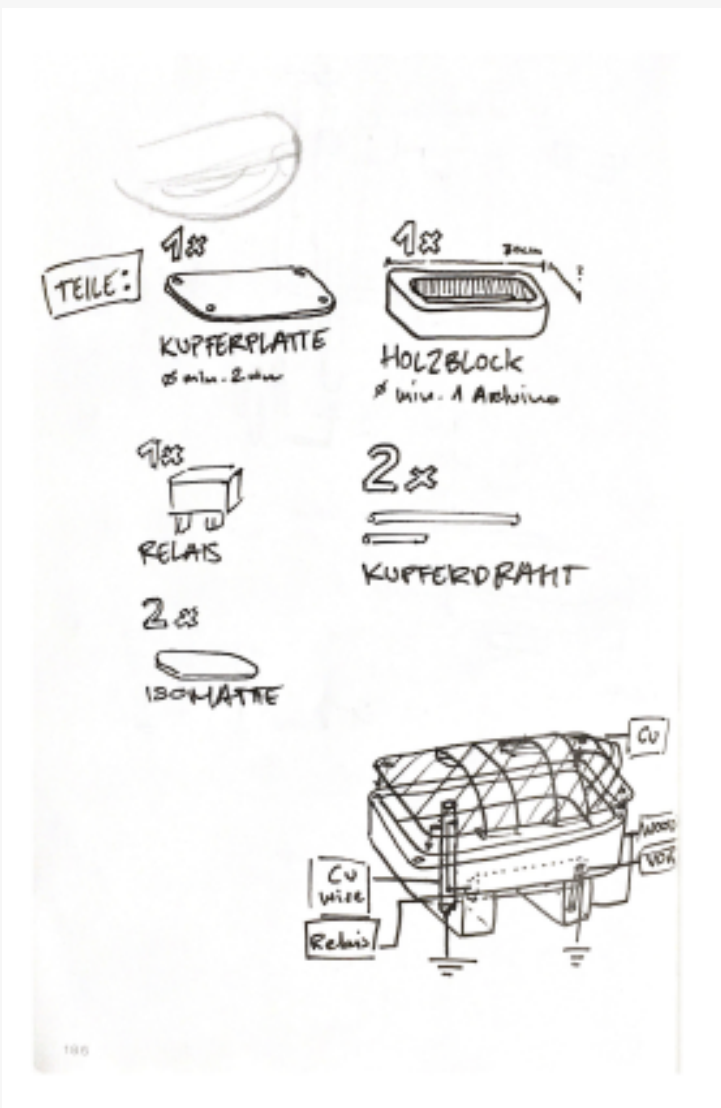 TEILE:
1x
KUPFERPLATTE
ø min. 2mm
1x
30cm
?
HOLZBLOCK
ø min. 1 Arduino
1x
RELAIS
2x
KUPFERDRAHT
2x
ISOMATTE
Cu
WOOD
Cu
wire
Relais
186